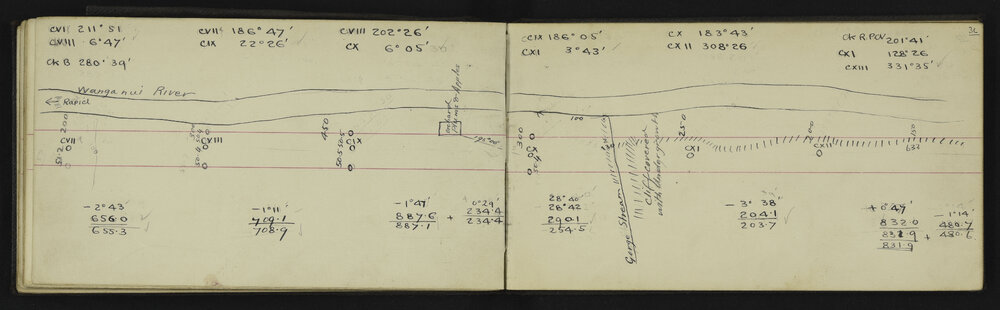 CVI 211° 51
CVIII 6° 47'
CK B 280° 39'
CVII 186° 47'
CIX 22° 26'
CVIII 202° 26'
CX 6° 05'
Wanganui River
Rapid
200
CVII
50.2
CVIII
50.4
450
CIX
50.5
Orchard
Plums & Apples
- 2° 43'
656.0
655.3
- 1° 11'
709.1
708.9
- 1° 47'
887.6
887.1
+ 0° 29'
234.4
234.4
36
CIX 186° 05'
CXI 3° 43'
CX 183° 43'
CXII 308° 26
CK R.POV 201° 41'
CXI 128° 26
CXIII 331° 35'
100
300
50.4
Gorge Stream
Cliff covered
with undergrowth
250
CXI
200
CXII
150
632
28° 40'
28° 42
290.1
254.5
- 3° 38'
204.1
203.7
+ 0° 47'
832.0
831.9
831.9
- 1° 14'
480.7
+ 480.6